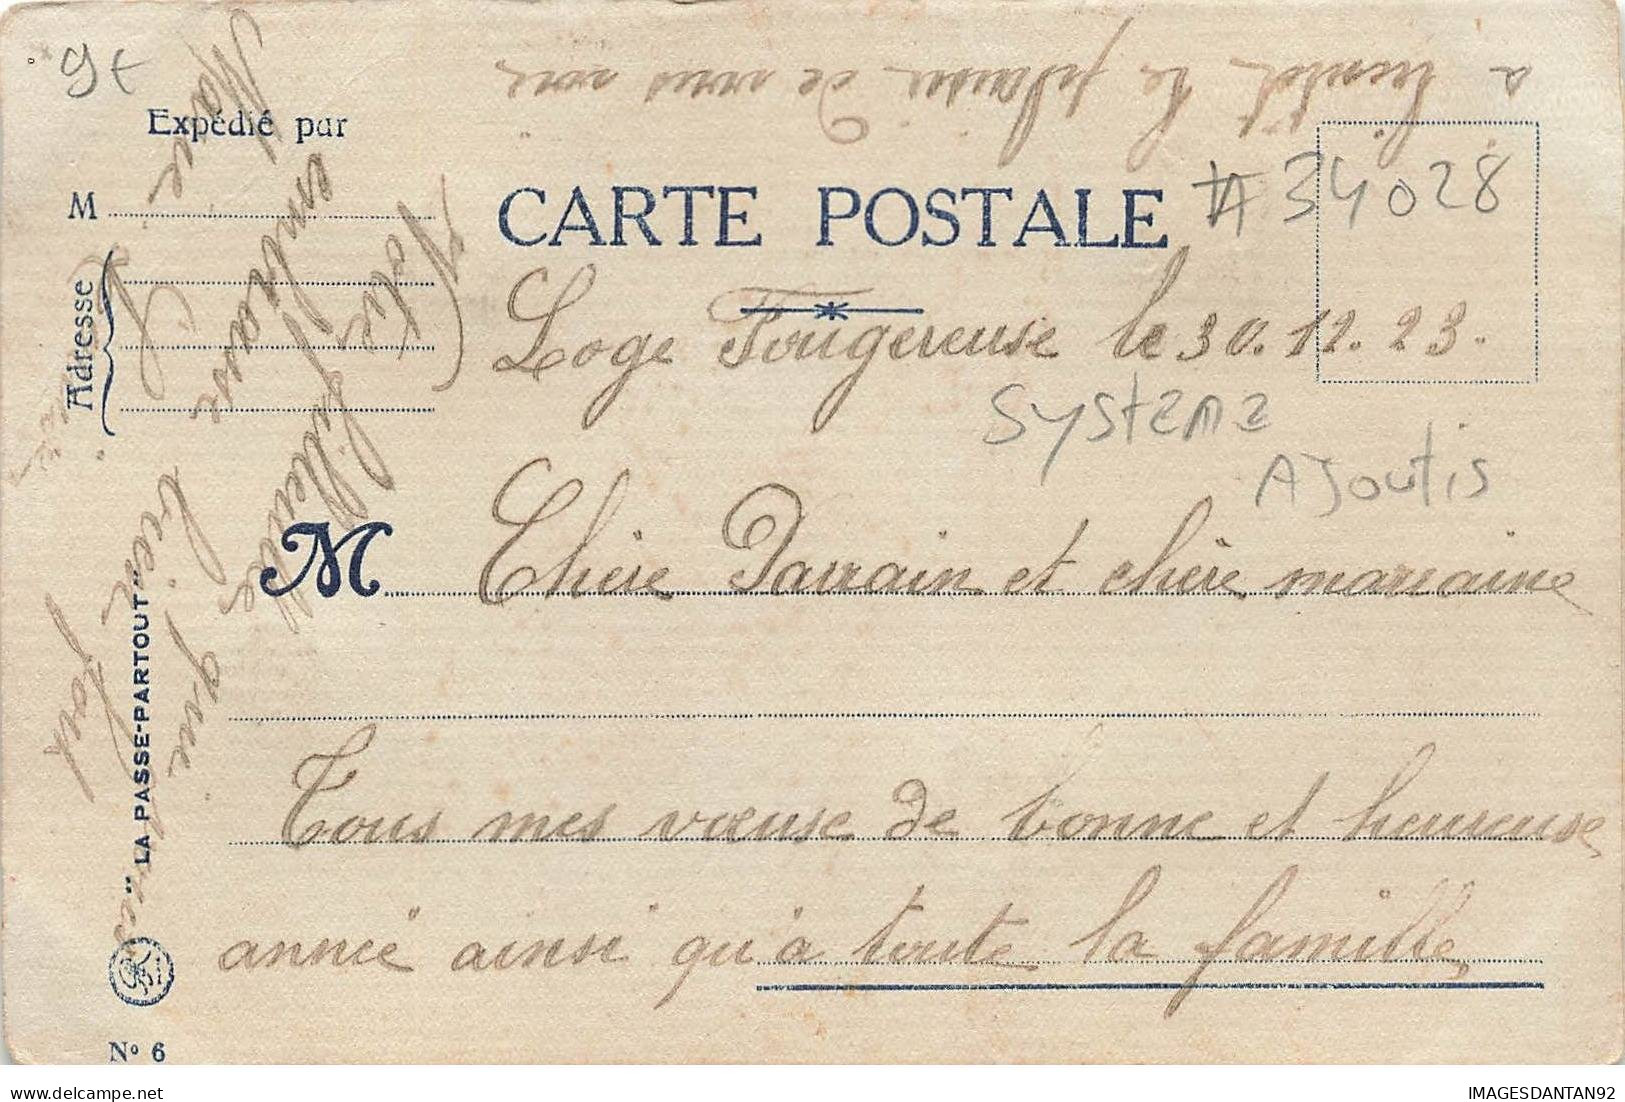 9€
Expédié par
M
Adresse
CARTE POSTALE
#34028
Loge Fougereuse le 30.12.23.
Systeme
Ajoutis
M Chère Parrain et chère marraine
Tous mes vœuse de bonne et heureuse
année ainsi qu'à toute la famille
à bientôt le plaisir de vous voir
Votre filleulle qui
embrasse bien fort
Marie
"LA PASSE-PARTOUT"
Nº 6
IMAGESDANTAN92